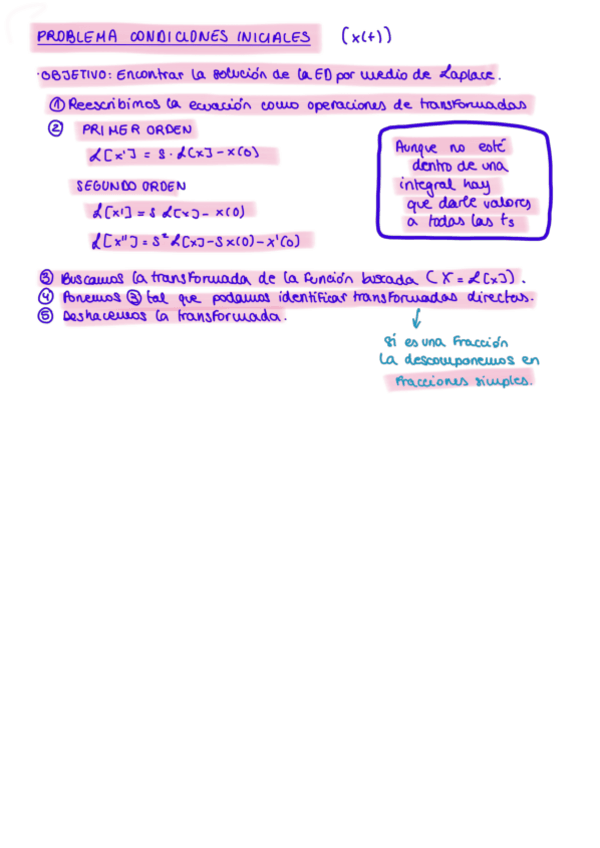 PROBLEMA CONDICIONES INICIALES (x(t))
·OBJETIVO: Encontrar la solución de la ED por medio de Laplace.
① Reescribimos la ecuación como operaciones de transformadas
② PRIMER ORDEN
ℒ[x'] = s · ℒ[x] - x(0)
SEGUNDO ORDEN
ℒ[x'] = s ℒ[x] - x(0)
ℒ[x''] = s² ℒ[x] - s x(0) - x'(0)
Aunque no esté
dentro de una
integral hay
que darle valores
a todas las ts
③ Buscamos la transformada de la función buscada (X = ℒ[x]).
④ Ponemos ③ tal que podamos identificar transformadas directas.
⑤ Deshacemos la transformada.
↓
Si es una fracción
la descomponemos en
fracciones simples.